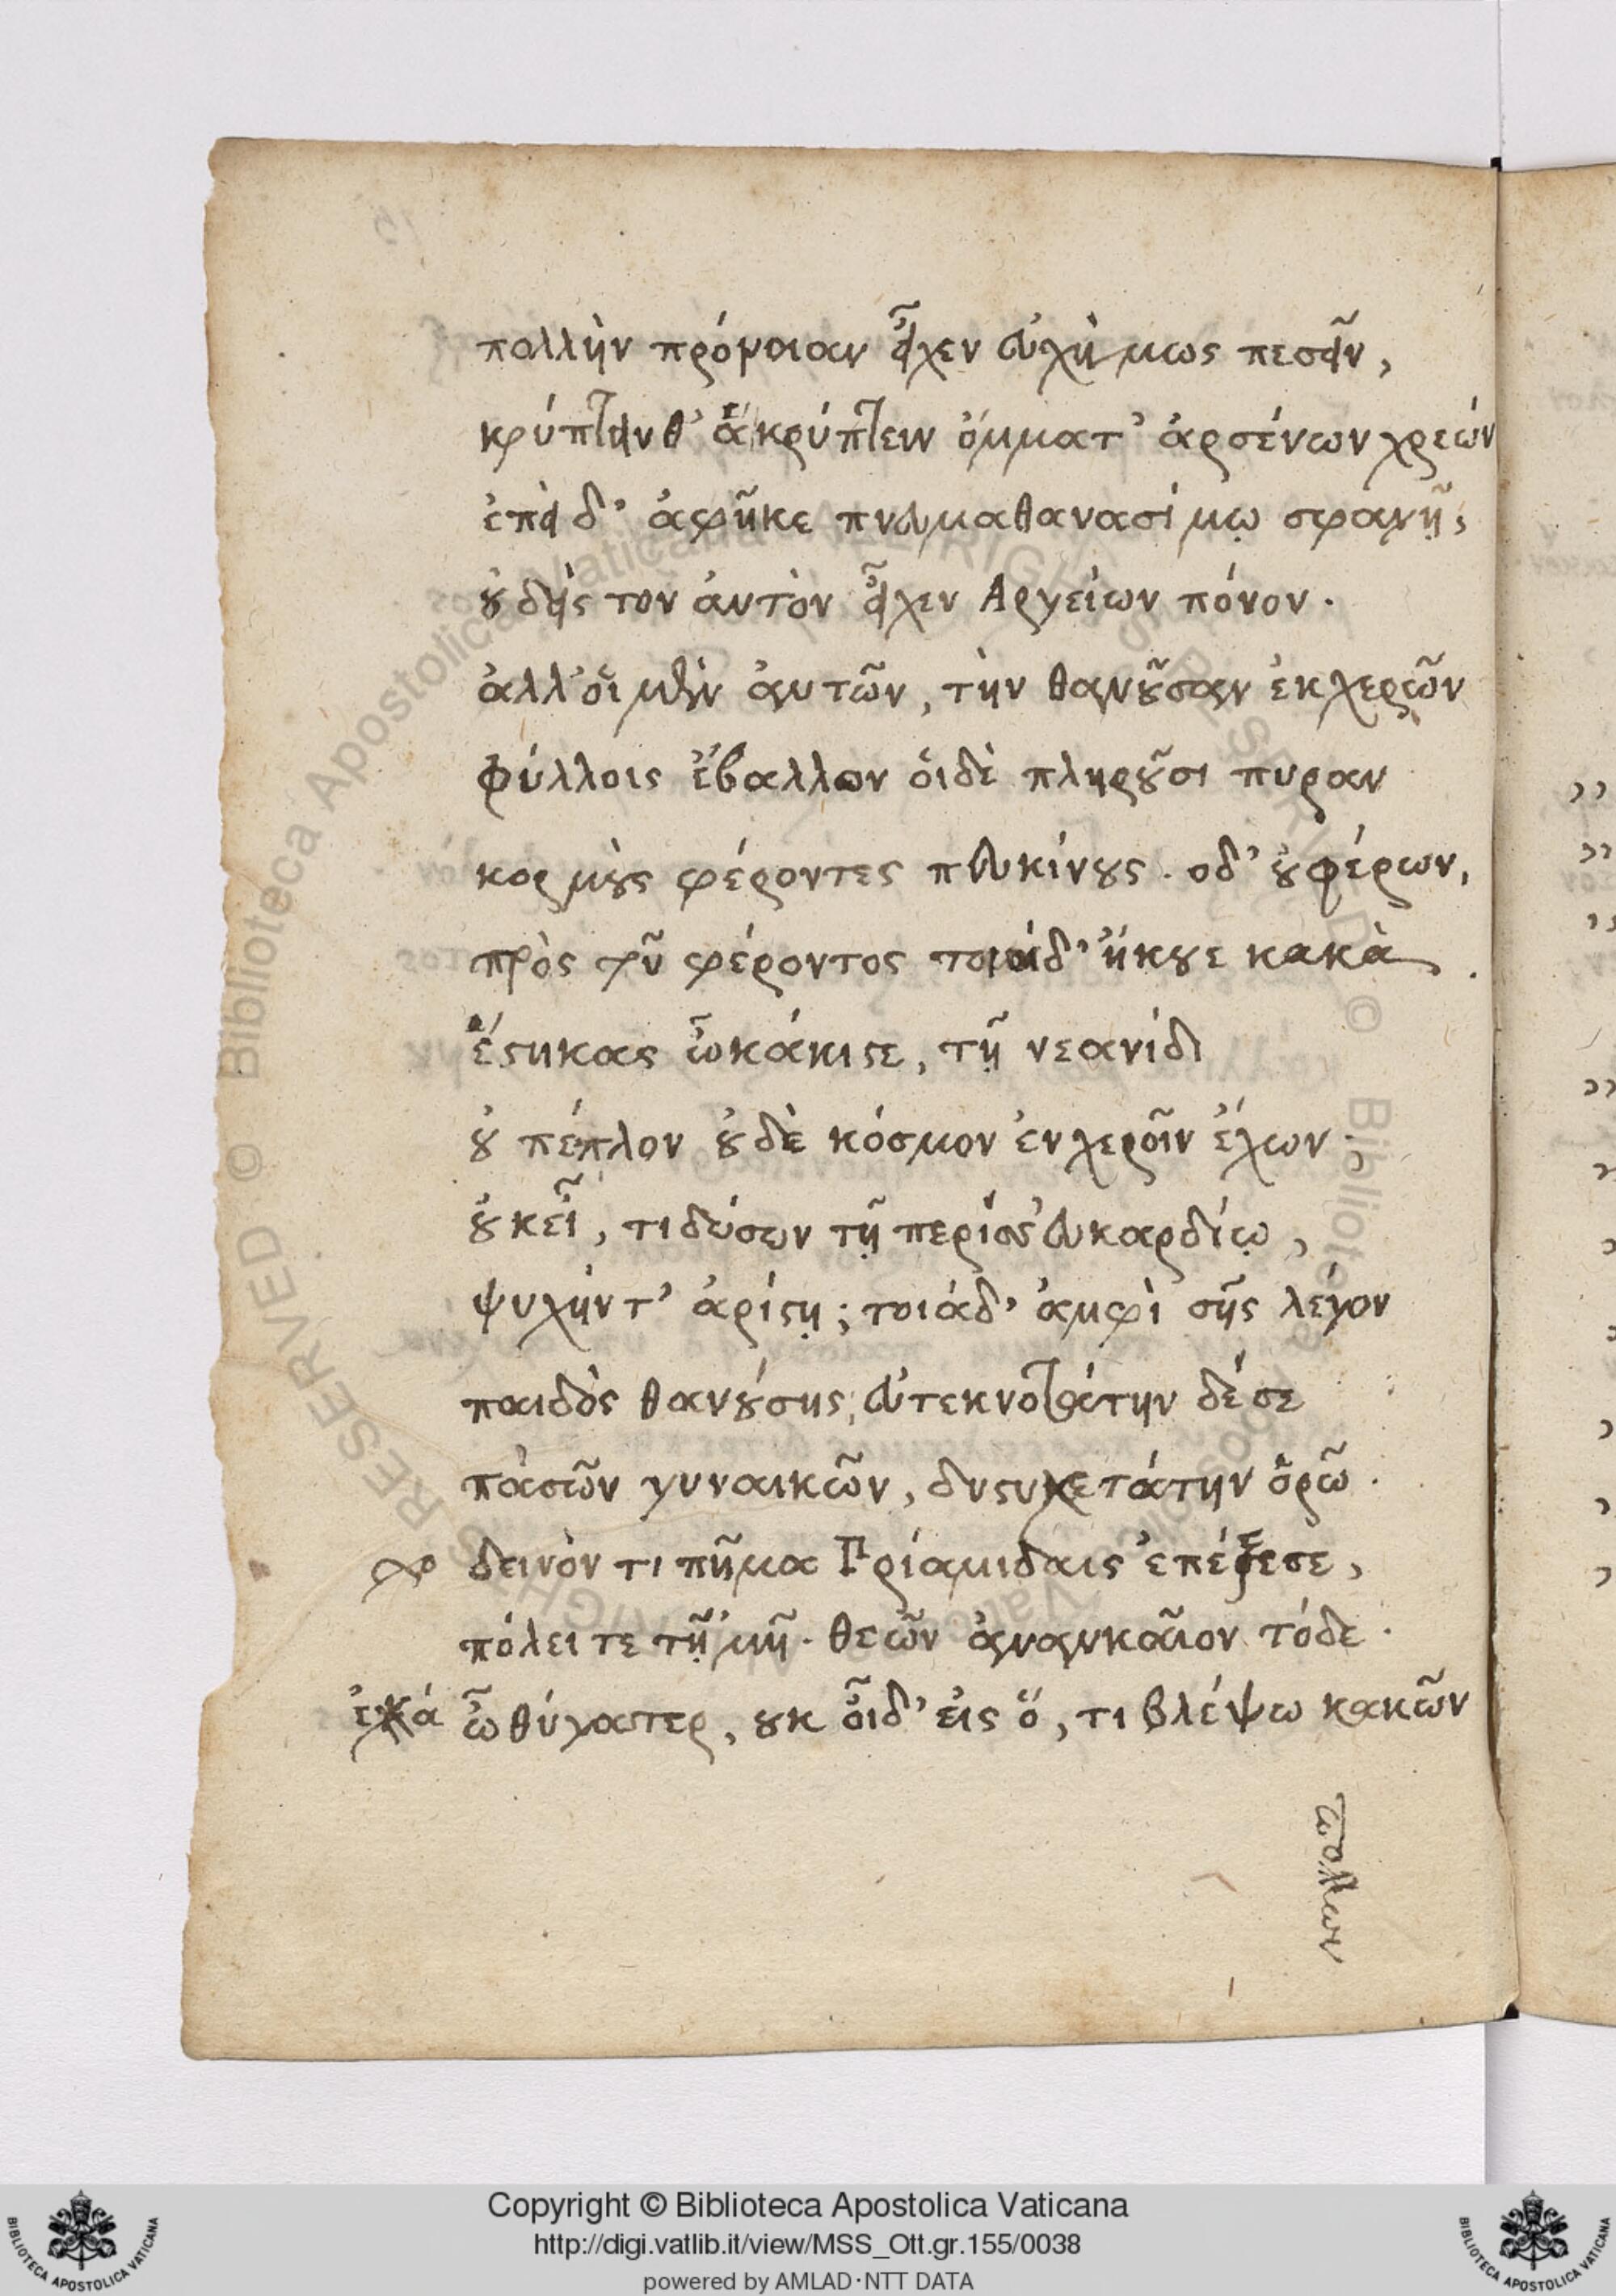 πολλὴν πρόνοιαν εἶχεν εὐχήμως πεσεῖν,
κρύπτειν θ' ἃ κρύπτειν ὄμματ' ἀρσένων χρεών
ἐπεὶ δ' ἀφῆκε πνεῦμα θανασίμῳ σφαγῇ,
οὐδεὶς τον ἀυτὸν εἶχεν Αργείων πόνον.
ἀλλ' οἵ μὲν ἀυτῶν, τὴν θανοῦσαν ἐκ χερῶν
φύλλοις ἔβαλλον οἵ δὲ πληροῦσι πυραν
κορμοὺς φέροντες πευκίνους. οδ' οὐ φέρων,
πρὸς τοῦ φέροντος τοιάδ' ἤκουε κακὰ.
ἕστηκας ὦ κάκιστε, τῇ νεανίδι
οὐ πέπλον οὐδὲ κόσμον ἐν χεροῖν ἔχων;
οὐκ εἶ, τι δώσων τῇ περίσσ' εὐκαρδίῳ,
ψυχήν τ' ἀρίστῃ; τοιάδ' ἀμφὶ σῆς λέγον
παιδὸς θανούσης, εὐτεκνοτάτην δέ σε
πασῶν γυναικῶν, δυστυχεστάτην ὁρῶ.
χο δεινὸν τι πῆμα Πριαμίδαις ἐπέζεσε,
πόλει τε τῇ 'μῇ. θεῶν ἀναγκαῖον τόδε.
ἑκά ὦ θύγατερ, ουκ οἶδ' εἰς ὅ, τι βλέψω κακῶν
πολλων
Copyright © Biblioteca Apostolica Vaticana
http://digi.vatlib.it/view/MSS_Ott.gr.155/0038
powered by AMLAD·NTT DATA
BIBLIOTECA APOSTOLICA VATICANA
BIBLIOTECA APOSTOLICA VATICANA